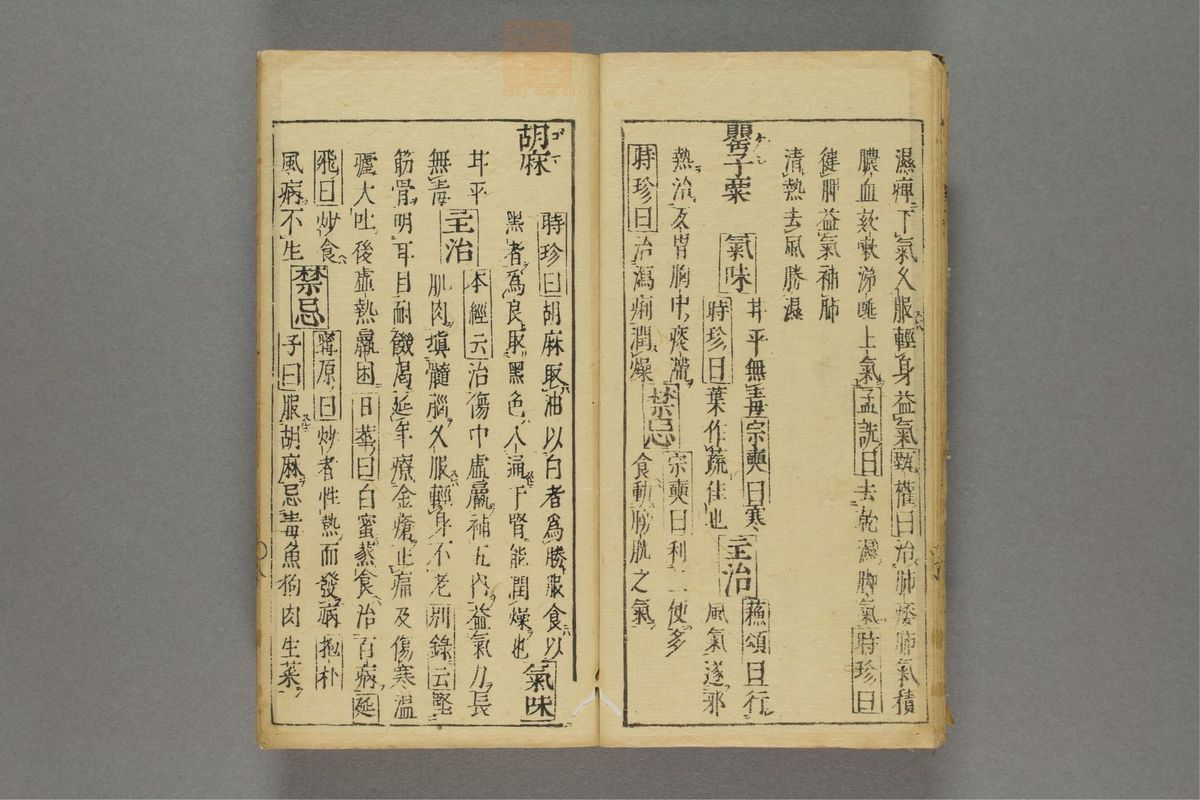 濕痺下氣久服輕身益氣甄權曰治肺痿肺氣積
膿血欬嗽涕唾上氣孟詵曰去乾濕脚氣時珍曰
健脾益氣補肺
清熱去風勝濕
罌子粟
氣味
甘平無毒宗奭曰寒
時珍曰葉作蔬佳也
主治
蘇頌曰行
風氣逐邪
熱治反胃胸中痰滯
時珍曰治瀉痢潤燥
禁忌
宗奭曰利二便多
食動膀胱之氣
胡麻
時珍曰胡麻取油以白者爲勝服食以
黑者爲良取黑色入通于腎能潤燥也
氣味
甘平
無毒
主治
本經云治傷中虛羸補五內益氣力長
肌肉填髓腦久服輕身不老別錄云堅
筋骨明耳目耐饑渴延年療金瘡止痛及傷寒溫
瘧大吐後虛熱羸困日華曰白蜜蒸食治百病延
飛曰炒食
風病不生
禁忌
甯原曰炒者性熱而發病抱朴
子曰服胡麻忌毒魚狗肉生菜